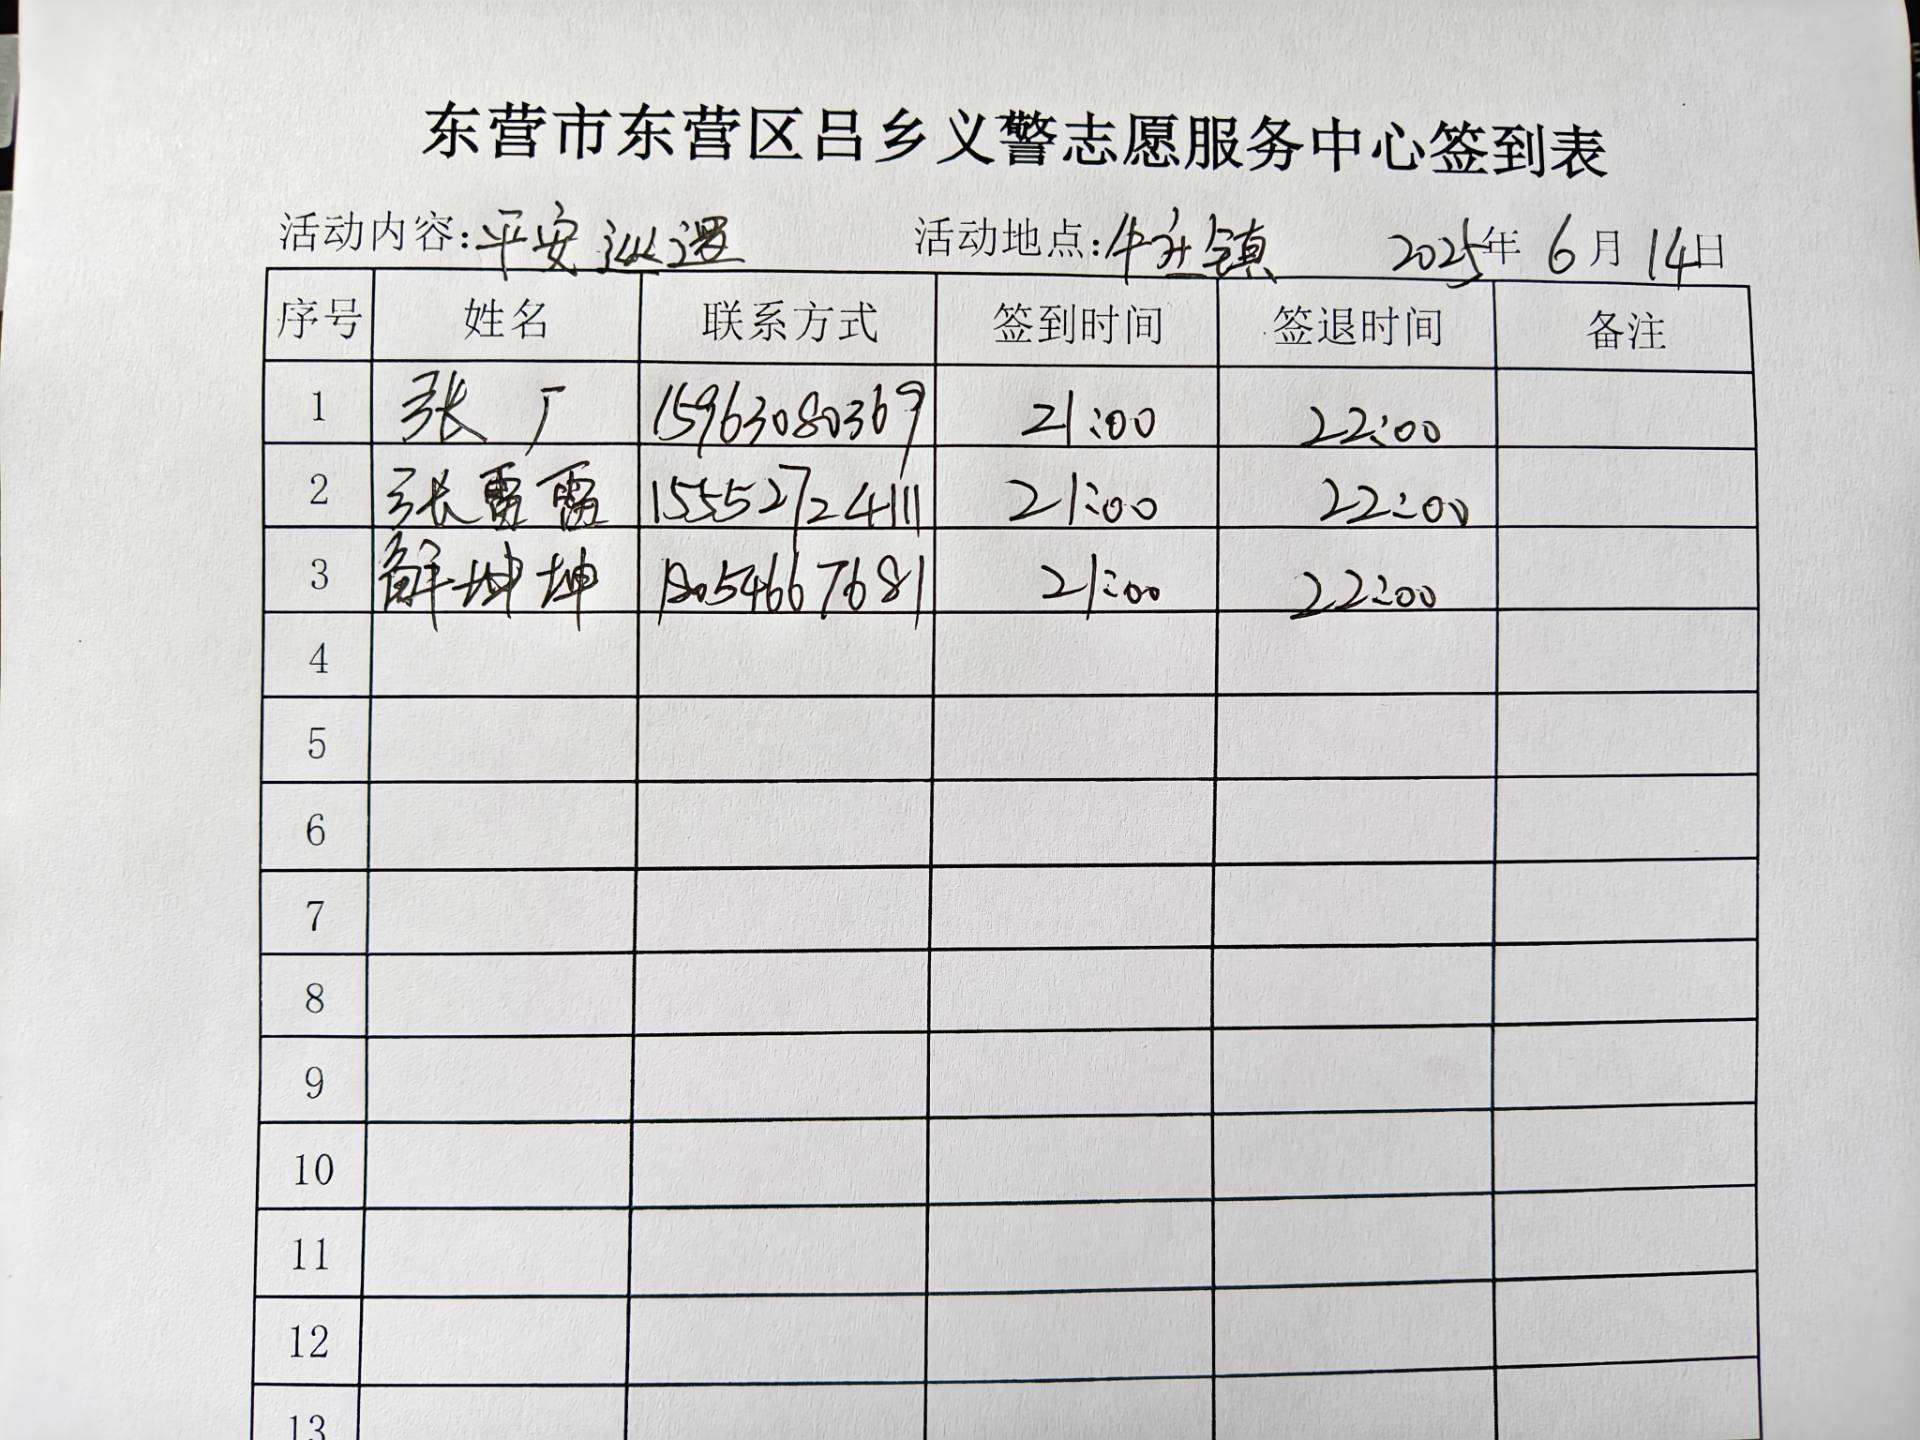 东营市东营区吕乡义警志愿服务中心签到表
活动内容:平安巡逻 活动地点:牛庄镇 2025年 6月 14日
序号 姓名 联系方式 签到时间 签退时间 备注
1 张广 15963080369 21:00 22:00
2 张雷雷 15552724111 21:00 22:00
3 解坤坤 18054667681 21:00 22:00
4
5
6
7
8
9
10
11
12
13